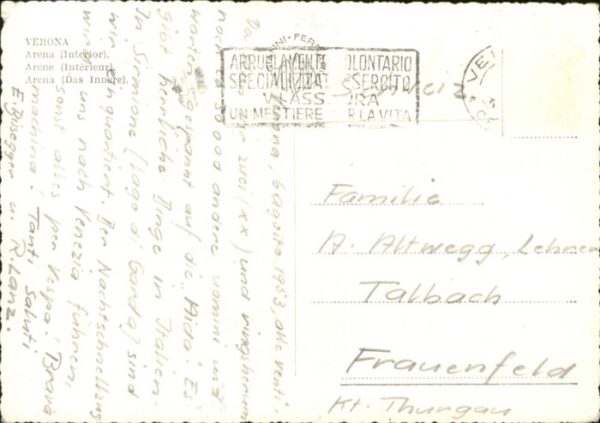 VERONA
Arena (Interior).
Arène (Intérieur).
Arena (Das Innere).
ARRUOLAMENTO VOLONTARIO
SPECIALIZZATI ESERCITO
VI ASSICURA
UN MESTIERE PER LA VITA
Verona, 6 agosto 1953, ore venti-
zwei (xx) und
noch ca 30 000 andere uomini und
warten gespannt auf die "Aida". Es
gibt herrliche Dinge in Italien.
In Sirmione (Lago di Garda) sind
wir einquartiert. Der Nachtschnellzug
wird uns nach Venezia führen,
sonst alles per Vespa. "Brava
machina". Tanti saluti
R. Lanz.
Familie
A. Altwegg, Lehrer
Talbach
Frauenfeld
Kt. Thurgau